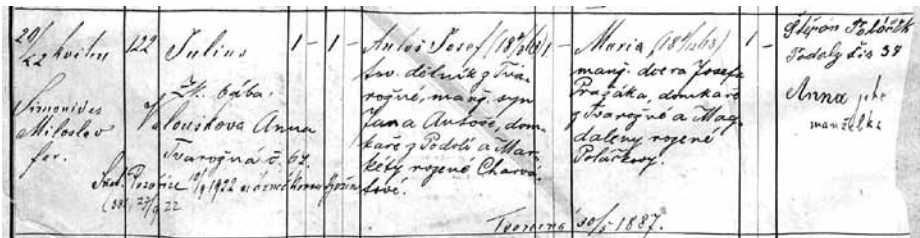 20/
22 května
Simonides
Miloslav
far.
122
Julius
Zk. bába:
Valouškova Anna
Tvarožná č. 67.
Pozořice 1922
1 - 1 -
Antoš Josef
tov. dělník z Tva-
rožné, manž. syn
Jana Antoše, dom-
kaře z Podolí a Mar-
kéty rozené Charvá-
tové.
1 -
Maria
manž. dcera Josefa
Pražáka, domkaře
z Tvarožné a Mag-
daleny rozené
Poláčkovy.
1 -
Štěpán Poláček
Podolí čís 37
Anna jeho
manželka
1887.